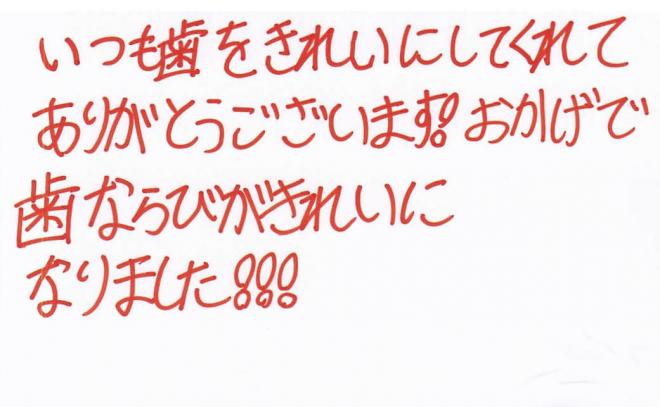 いつも歯をきれいにしてくれて
ありがとうございます!おかげで
歯ならびがきれいに
なりました!!!